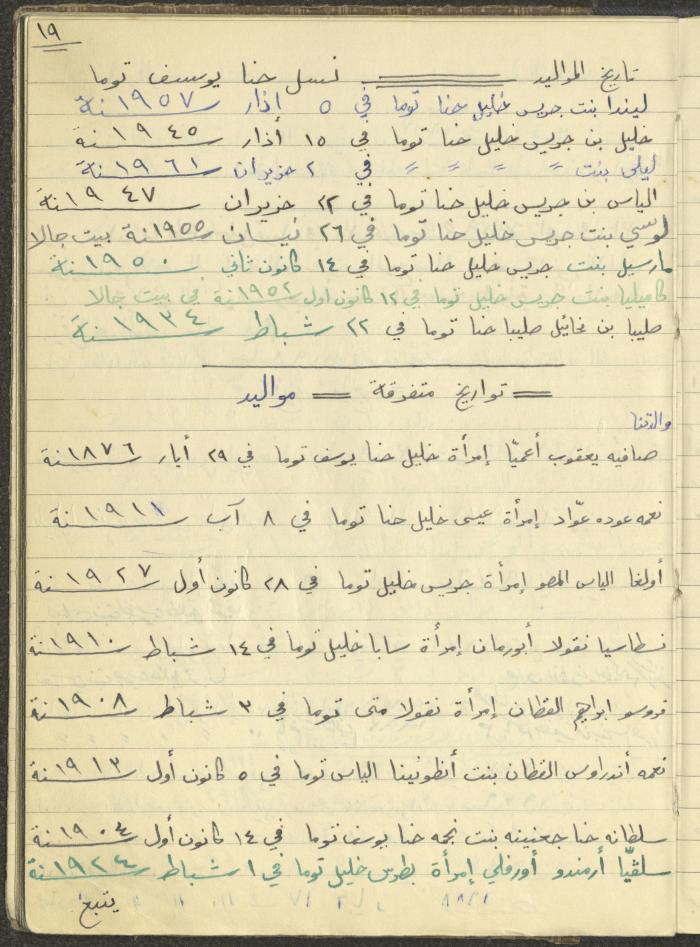 ١٩
تاريخ المواليد ــــــــ نسل حنا يوسف توما
ليندا بنت جريس خليل حنا توما في ٥ اذار سنة ١٩٥٧
خليل بن جريس خليل حنا توما في ١٥ أذار سنة ١٩٤٥
ليلى بنت = = = = في ٢ حزيران سنة ١٩٦١
الياس بن جريس خليل حنا توما في ٢٢ حزيران سنة ١٩٤٧
لوسي بنت جريس خليل حنا توما في ٢٦ نيسان سنة ١٩٥٥ بيت جالا
مارسيل بنت جريس خليل حنا توما في ١٤ كانون ثاني سنة ١٩٥٠
كاميليا بنت جريس خليل توما في ١٢ كانون اول سنة ١٩٥٢ في بيت جالا
صليبا بن مخائيل صليبا حنا توما في ٢٢ شباط سنة ١٩٣٤
= تواريخ متفرقة = مواليد
والدتنا
صافيه يعقوب أعميّا إمرأة خليل حنا يوسف توما في ٢٩ أيار سنة ١٨٧٦
نعمه عوده عوّاد إمرأة عيسى خليل حنا توما في ٨ آب سنة ١٩١١
أولغا الياس المصو إمرأة جريس خليل توما في ٢٨ كانون أول سنة ١٩٢٧
نسطاسيا نقولا أبورمان إمرأة سابا خليل توما في ١٤ شباط سنة ١٩١٠
فروسو ابراهيم القطان إمرأة نقولا متى توما في ٣ شباط سنة ١٩٠٨
نعمه أندراوس القطان بنت أنطونينا الياس توما في ٥ كانون أول سنة ١٩١٣
سلطانه حنا جعنينه بنت نجمه حنا يوسف توما في ١٤ كانون أول سنة ١٩٠٤
سلڤيّا أرمندو أورفلي إمرأة بطرس خليل توما في ١ شباط سنة ١٩٢٤
يتبع